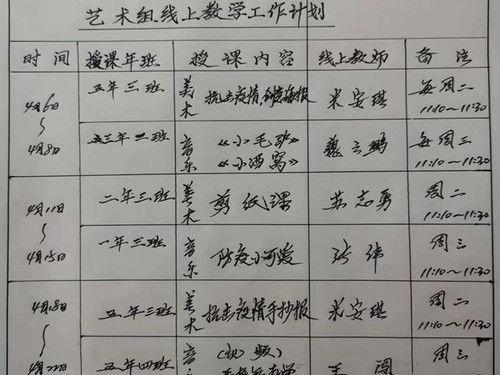 艺术组线上教学工作计划
时间 授课年班 授课内容 线上教师 备注
4月6日~4月8日 五年三班 美术 抗击疫情,创意海报 米安琪 每周二 11:10~11:30
三年二班 音乐 《小毛驴》《小酒窝》 魏云鹏 每周三 11:10~11:30
4月11日~4月15日 二年三班 美术 剪纸课 苏志勇 周二 11:10~11:30
一年三班 音乐 防疫小可爱 张伟 周三 11:10~11:30
4月18日 五年三班 美术 抗击疫情手抄报 米安琪 周二 11:10~11:30
4月22日 五年四班 音 王闯 周三